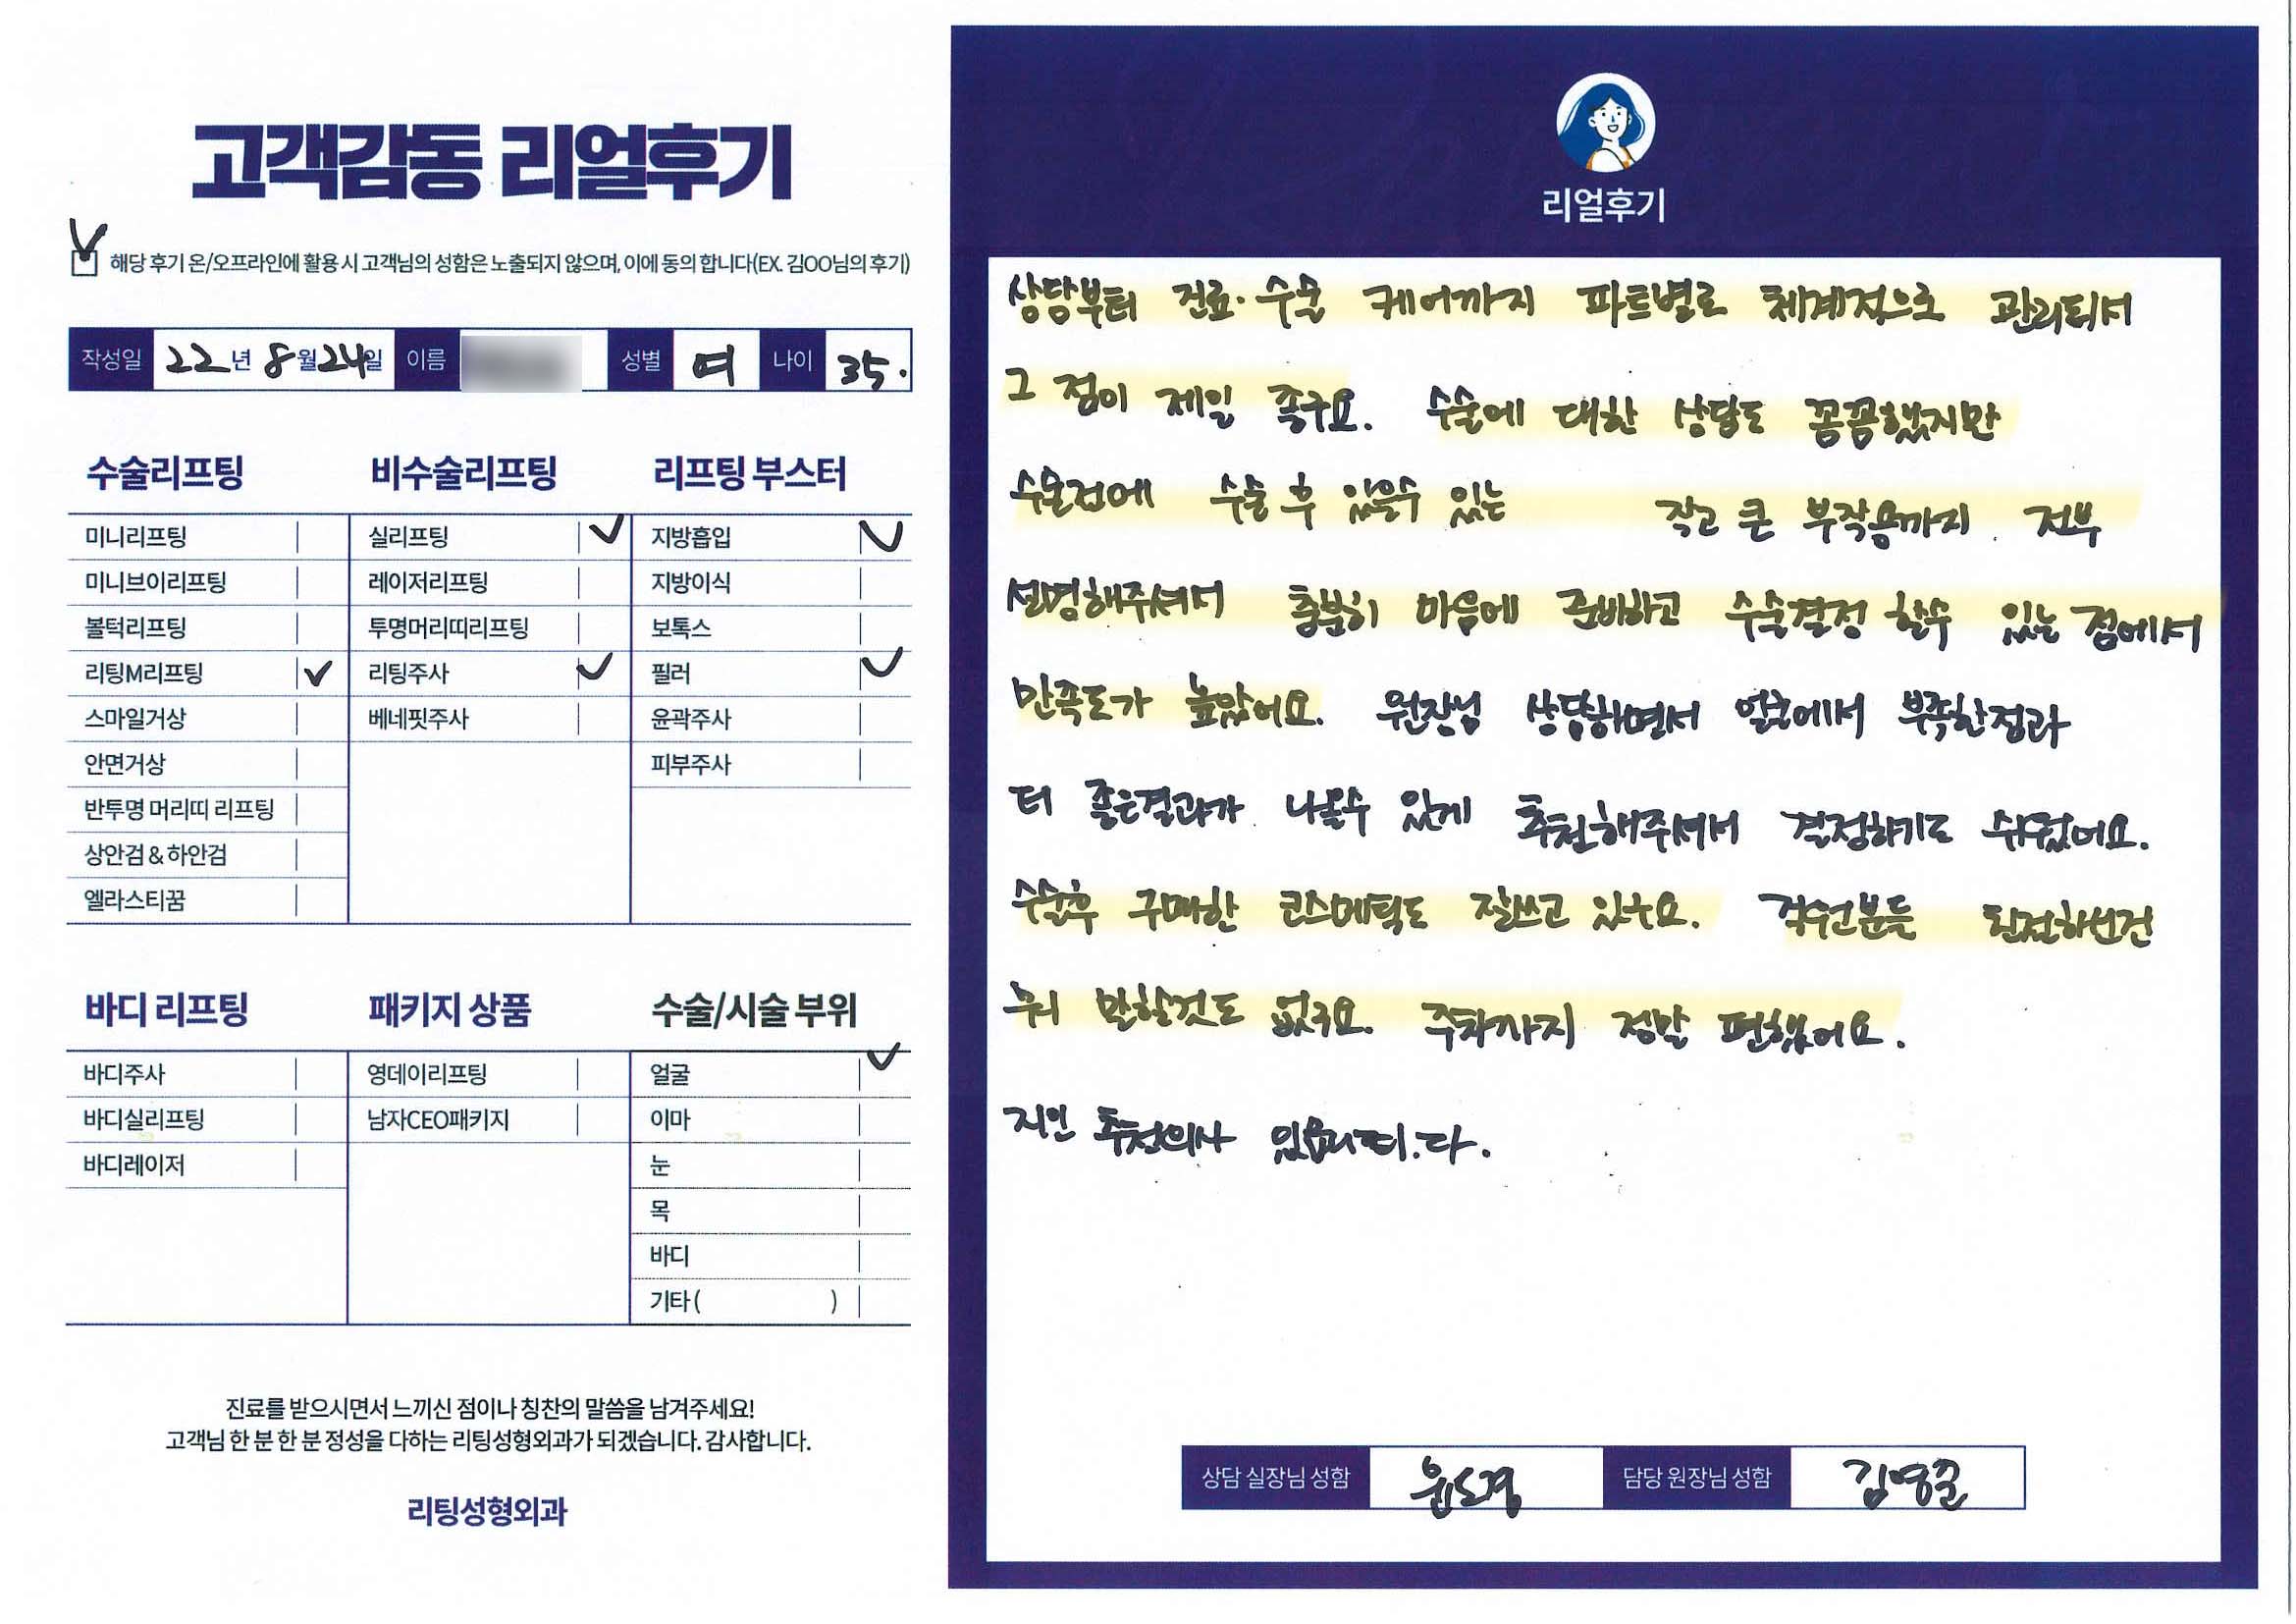 고객감동 리얼후기
해당 후기 온/오프라인에 활용 시 고객님의 성함은 노출되지 않으며, 이에 동의 합니다(EX. 김OO님의 후기)
작성일 22년 8월 24일 이름 성별 여 나이 35.
수술리프팅
미니리프팅
미니브이리프팅
볼턱리프팅
리팅M리프팅
스마일거상
안면거상
반투명 머리띠 리프팅
상안검 & 하안검
엘라스티꿈
비수술리프팅
실리프팅
레이저리프팅
투명머리띠리프팅
리팅주사
베네핏주사
리프팅 부스터
지방흡입
지방이식
보톡스
필러
윤곽주사
피부주사
바디 리프팅
바디주사
바디실리프팅
바디레이저
패키지 상품
영데이리프팅
남자CEO패키지
수술/시술 부위
얼굴
이마
눈
목
바디
기타 ( )
진료를 받으시면서 느끼신 점이나 칭찬의 말씀을 남겨주세요!
고객님 한 분 한 분 정성을 다하는 리팅성형외과가 되겠습니다. 감사합니다.
리팅성형외과
리얼후기
상담부터 진료·수술 케어까지 파트별로 체계적으로 관리되서
그 점이 제일 좋구요. 수술에 대한 상담도 꼼꼼했지만
수술전에 수술 후 있을수 있는 작고 큰 부작용까지 전부
설명해주셔서 충분히 마음에 준비하고 수술결정 할수 있는 점에서
만족도가 높았어요. 원장님 상담하면서 얼굴에서 부족한점과
더 좋은결과가 나올수 있게 추천해주셔서 결정하기도 쉬웠어요.
수술후 구매한 코스메틱도 잘쓰고 있구요. 직원분들 친절하신건
뭐 말할것도 없구요. 주차까지 정말 편했어요.
지인 추천의사 있습니다.
상담 실장님 성함 담당 원장님 성함 김영준